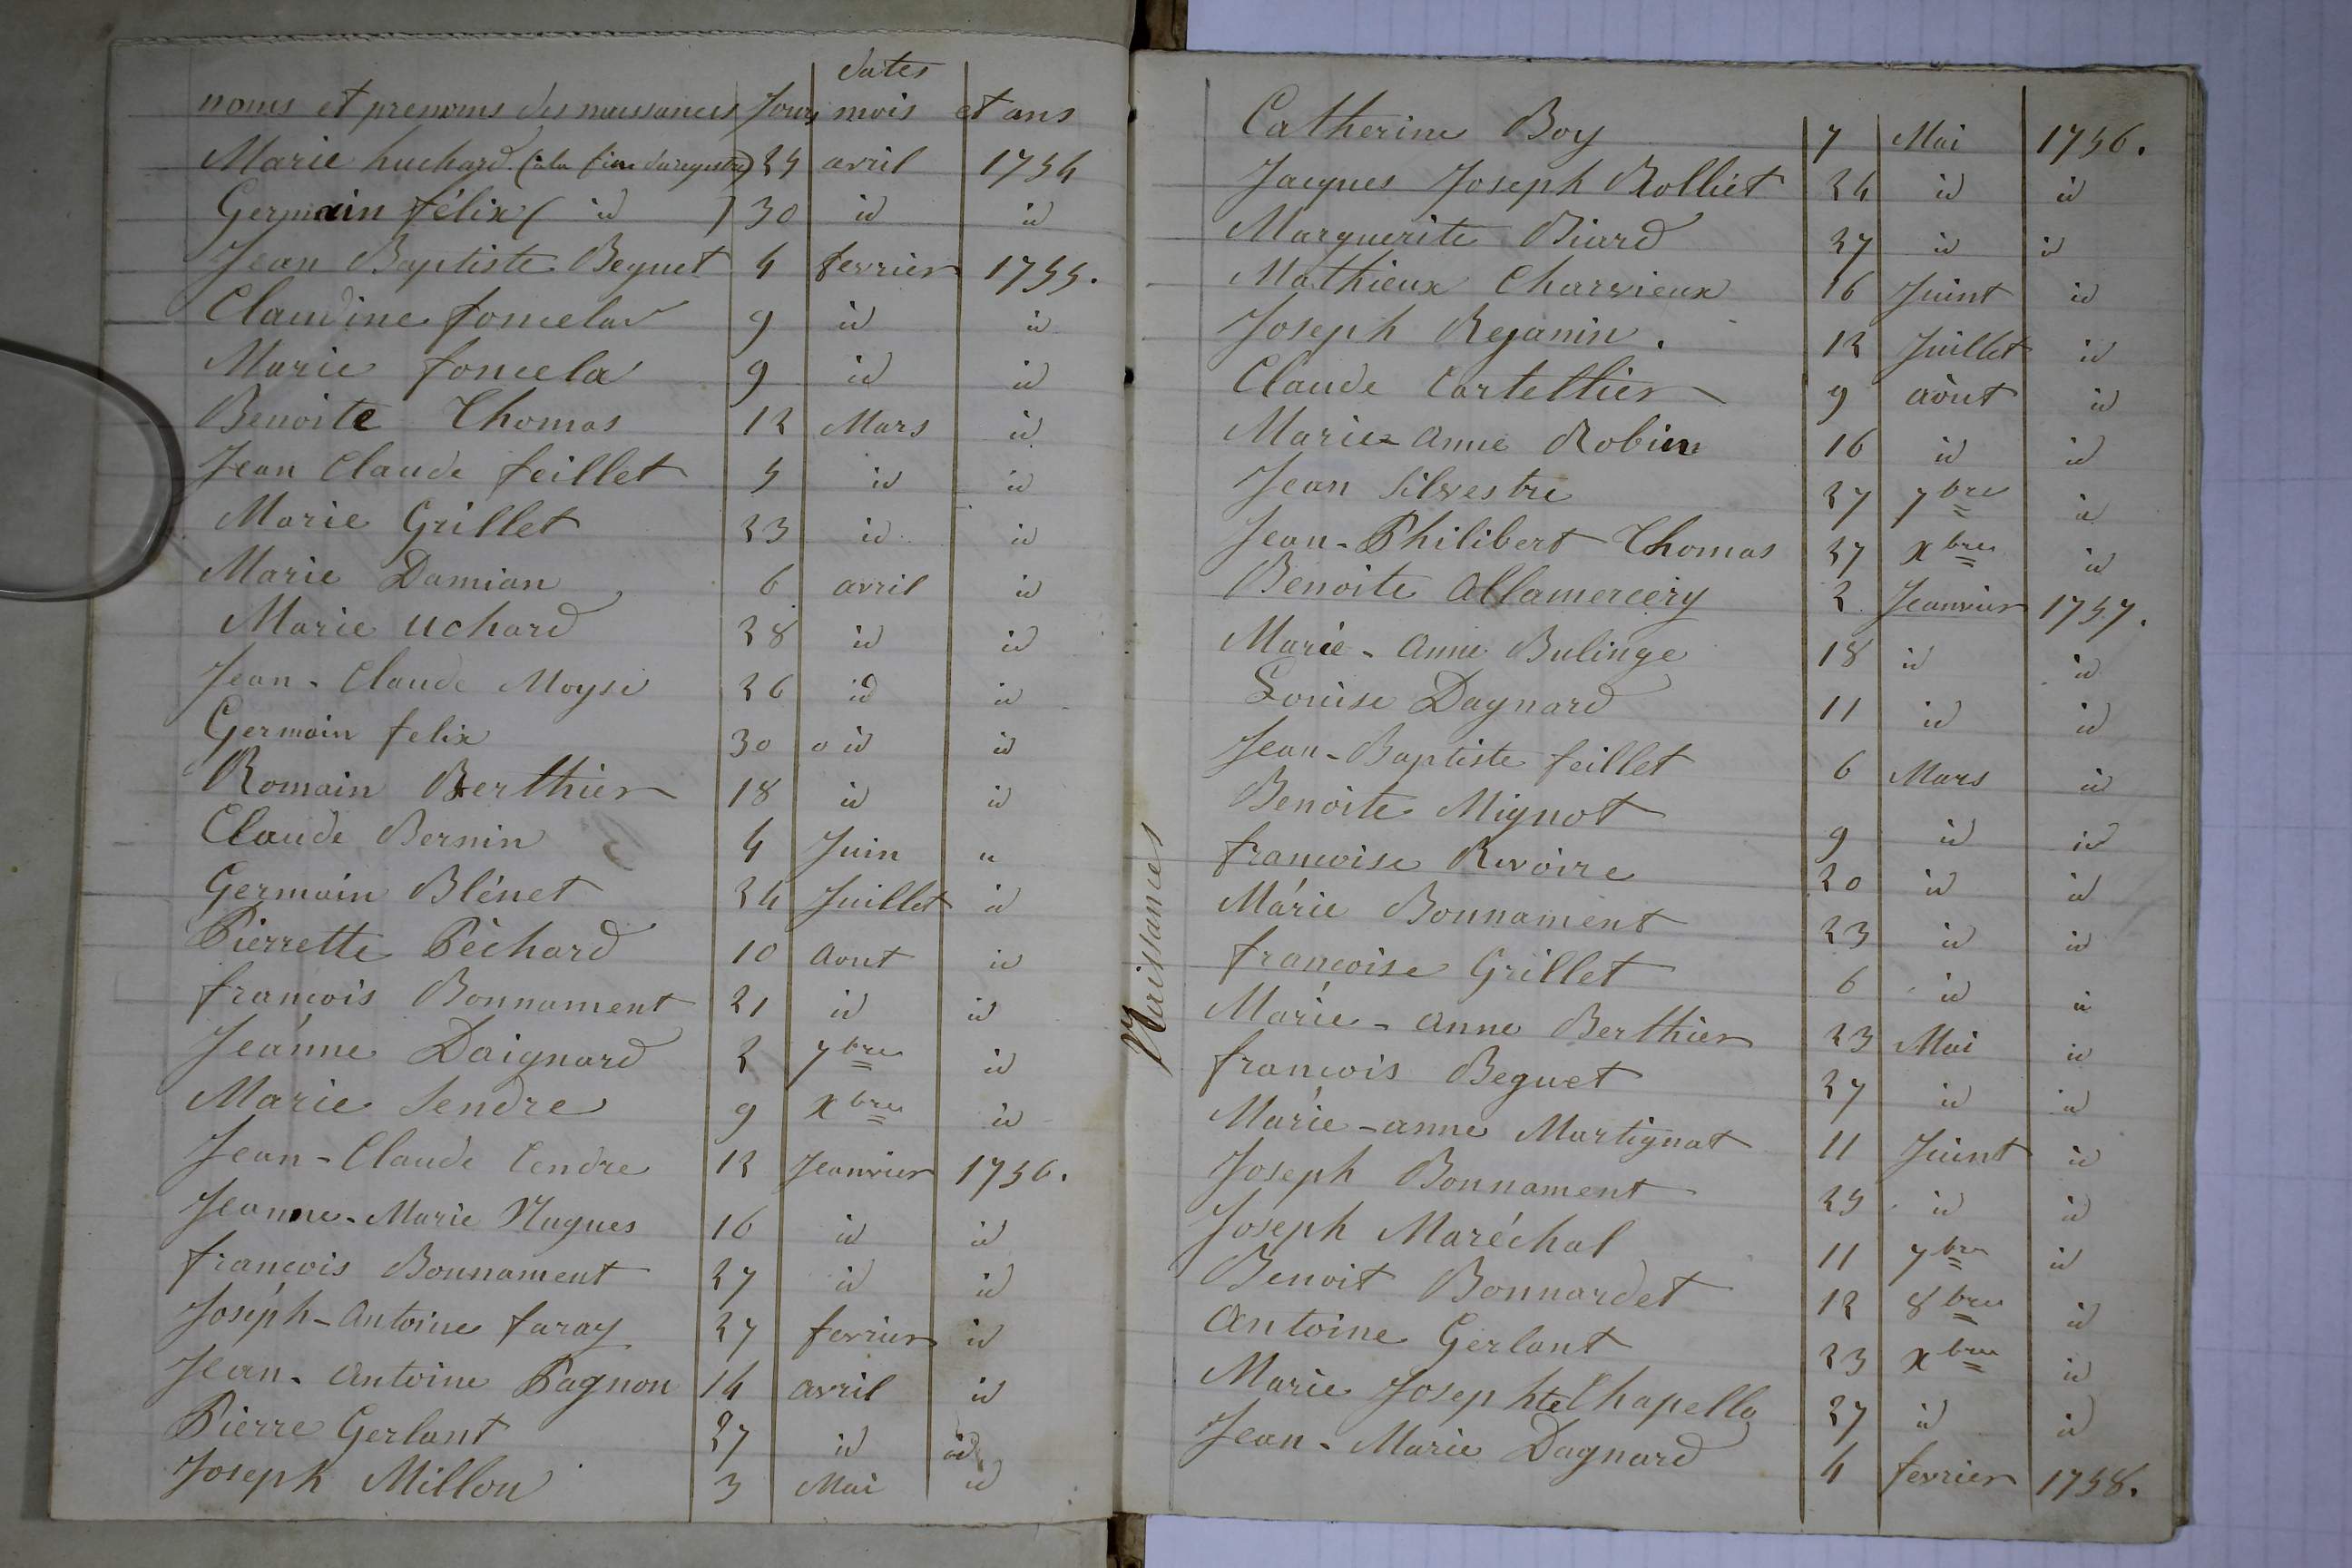 dates
noms et prenoms des naissances Jours mois et ans
Marie huchard (a la fin du registre) 25 avril 1754
Germain félix ( id ) 30 id id
Jean Baptiste Beguet 4 fevrier 1755.
Claudine foncelas 9 id id
Marie foncela 9 id id
Benoite Thomas 12 Mars id
Jean Claude feillet 5 id id
Marie Grillet 23 id id
Marie Damian 6 avril id
Marie Uchard 28 id id
Jean-Claude Moyse 26 id id
Germain felix 30 id id
Romain Berthier 18 id id
Claude Bernin 4 Juin "
Germain Blénet 24 Juillet id
Pierrette Péchard 10 Aout id
françois Bonnament 21 id id
Jeanne Daignard 2 7bre id
Marie Sendre 9 xbre id
Jean-Claude Cendre 12 Jeanvier 1756.
Jeanne-Marie Hugues 16 id id
françois Bonnament 27 id id
Joseph-Antoine faray 27 fevrier id
Jean-Antoine Pagnon 14 avril id
Pierre Gerlant 27 id id
Joseph Millon 3 Mai id
Naissances
Catherine Boy 7 Mai 1756.
Jacques Joseph Rolliet 24 id id
Marguerite Biard 27 id id
Mathieux Charvieux 16 Juint id
Joseph Reganin. 12 Juillet id
Claude Cartellier 9 août id
Marie-anne Robin 16 id id
Jean Silvestre 27 7bre id
Jean-Philibert Thomas 27 xbre id
Benoite Allamercery 2 Jeanvier 1757.
Marie-Anne Bulinge 18 id id
Louise Dagnard 11 id id
Jean-Baptiste feillet 6 Mars id
Benoite Mignot 9 id id
françoise Rivoire 20 id id
Marie Bonnament 23 id id
françoise Grillet 6 id id
Marie-anne Berthier 23 Mai id
françois Beguet 27 id id
Marie-anne Martignat 11 Juint id
Joseph Bonnament 25 id id
Joseph Maréchal 11 7bre id
Benoit Bonnardet 12 8bre id
Antoine Gerlant 23 xbre id
Marie Josephte Chapella 27 id id
Jean-Marie Dagnard 4 fevrier 1758.